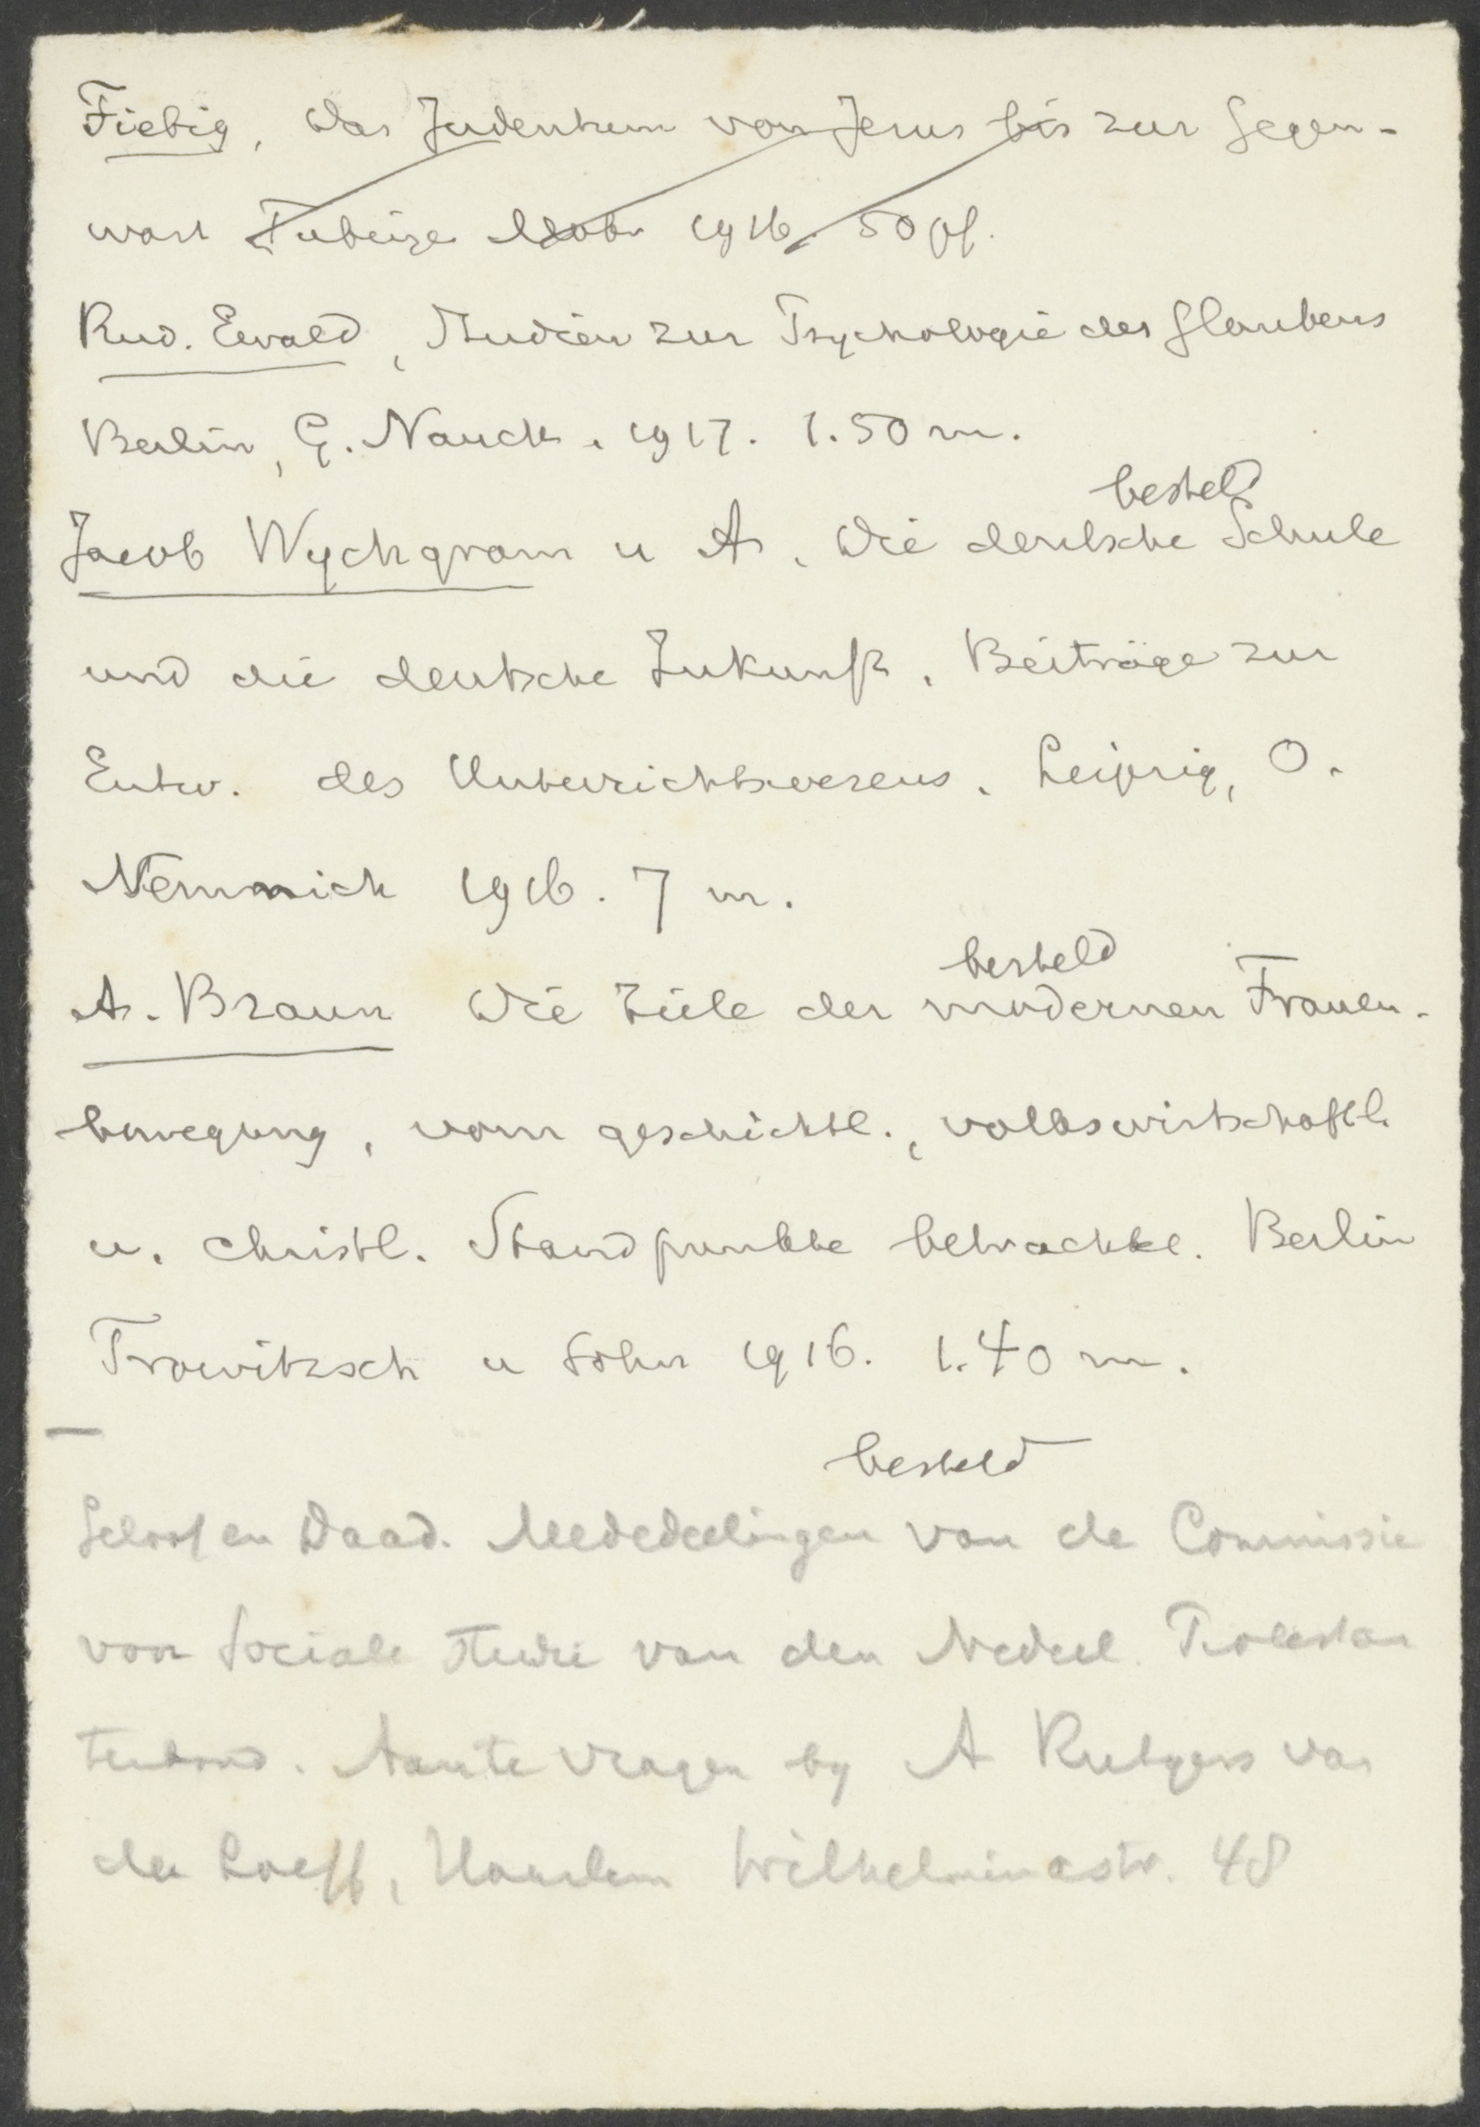 Fiebig, Das Judentum von Jesus bis zur Gegen-
wart Tubinge Mohr 1916. 50 pf.
Rud. Ewald, Studien zur Psychologie des Glaubens
Berlin, G. Nauck. 1917. 1.50 m.
besteld
Jacob Wychgram u A. Die deutsche Schule
und die deutsche Zukunft. Beiträge zur
Entw. des Unterrichtswesens. Leipzig, O.
Nemnich 1916. 7 m.
besteld
A. Braun Die Ziele der modernen Frauen-
bewegung, vom geschichtl., volkswirtschaftl.
u. christl. Standpunkte betrachtet. Berlin
Trowitzsch u Sohn 1916. 1.40 m.
besteld
Geloof en Daad. Mededeelingen van de Commissie
voor Sociale studie van den Nederl. Protestan
tenbond. Aan te vragen by A Rutgers van
der Loeff, Haarlem Wilhelminastr. 48